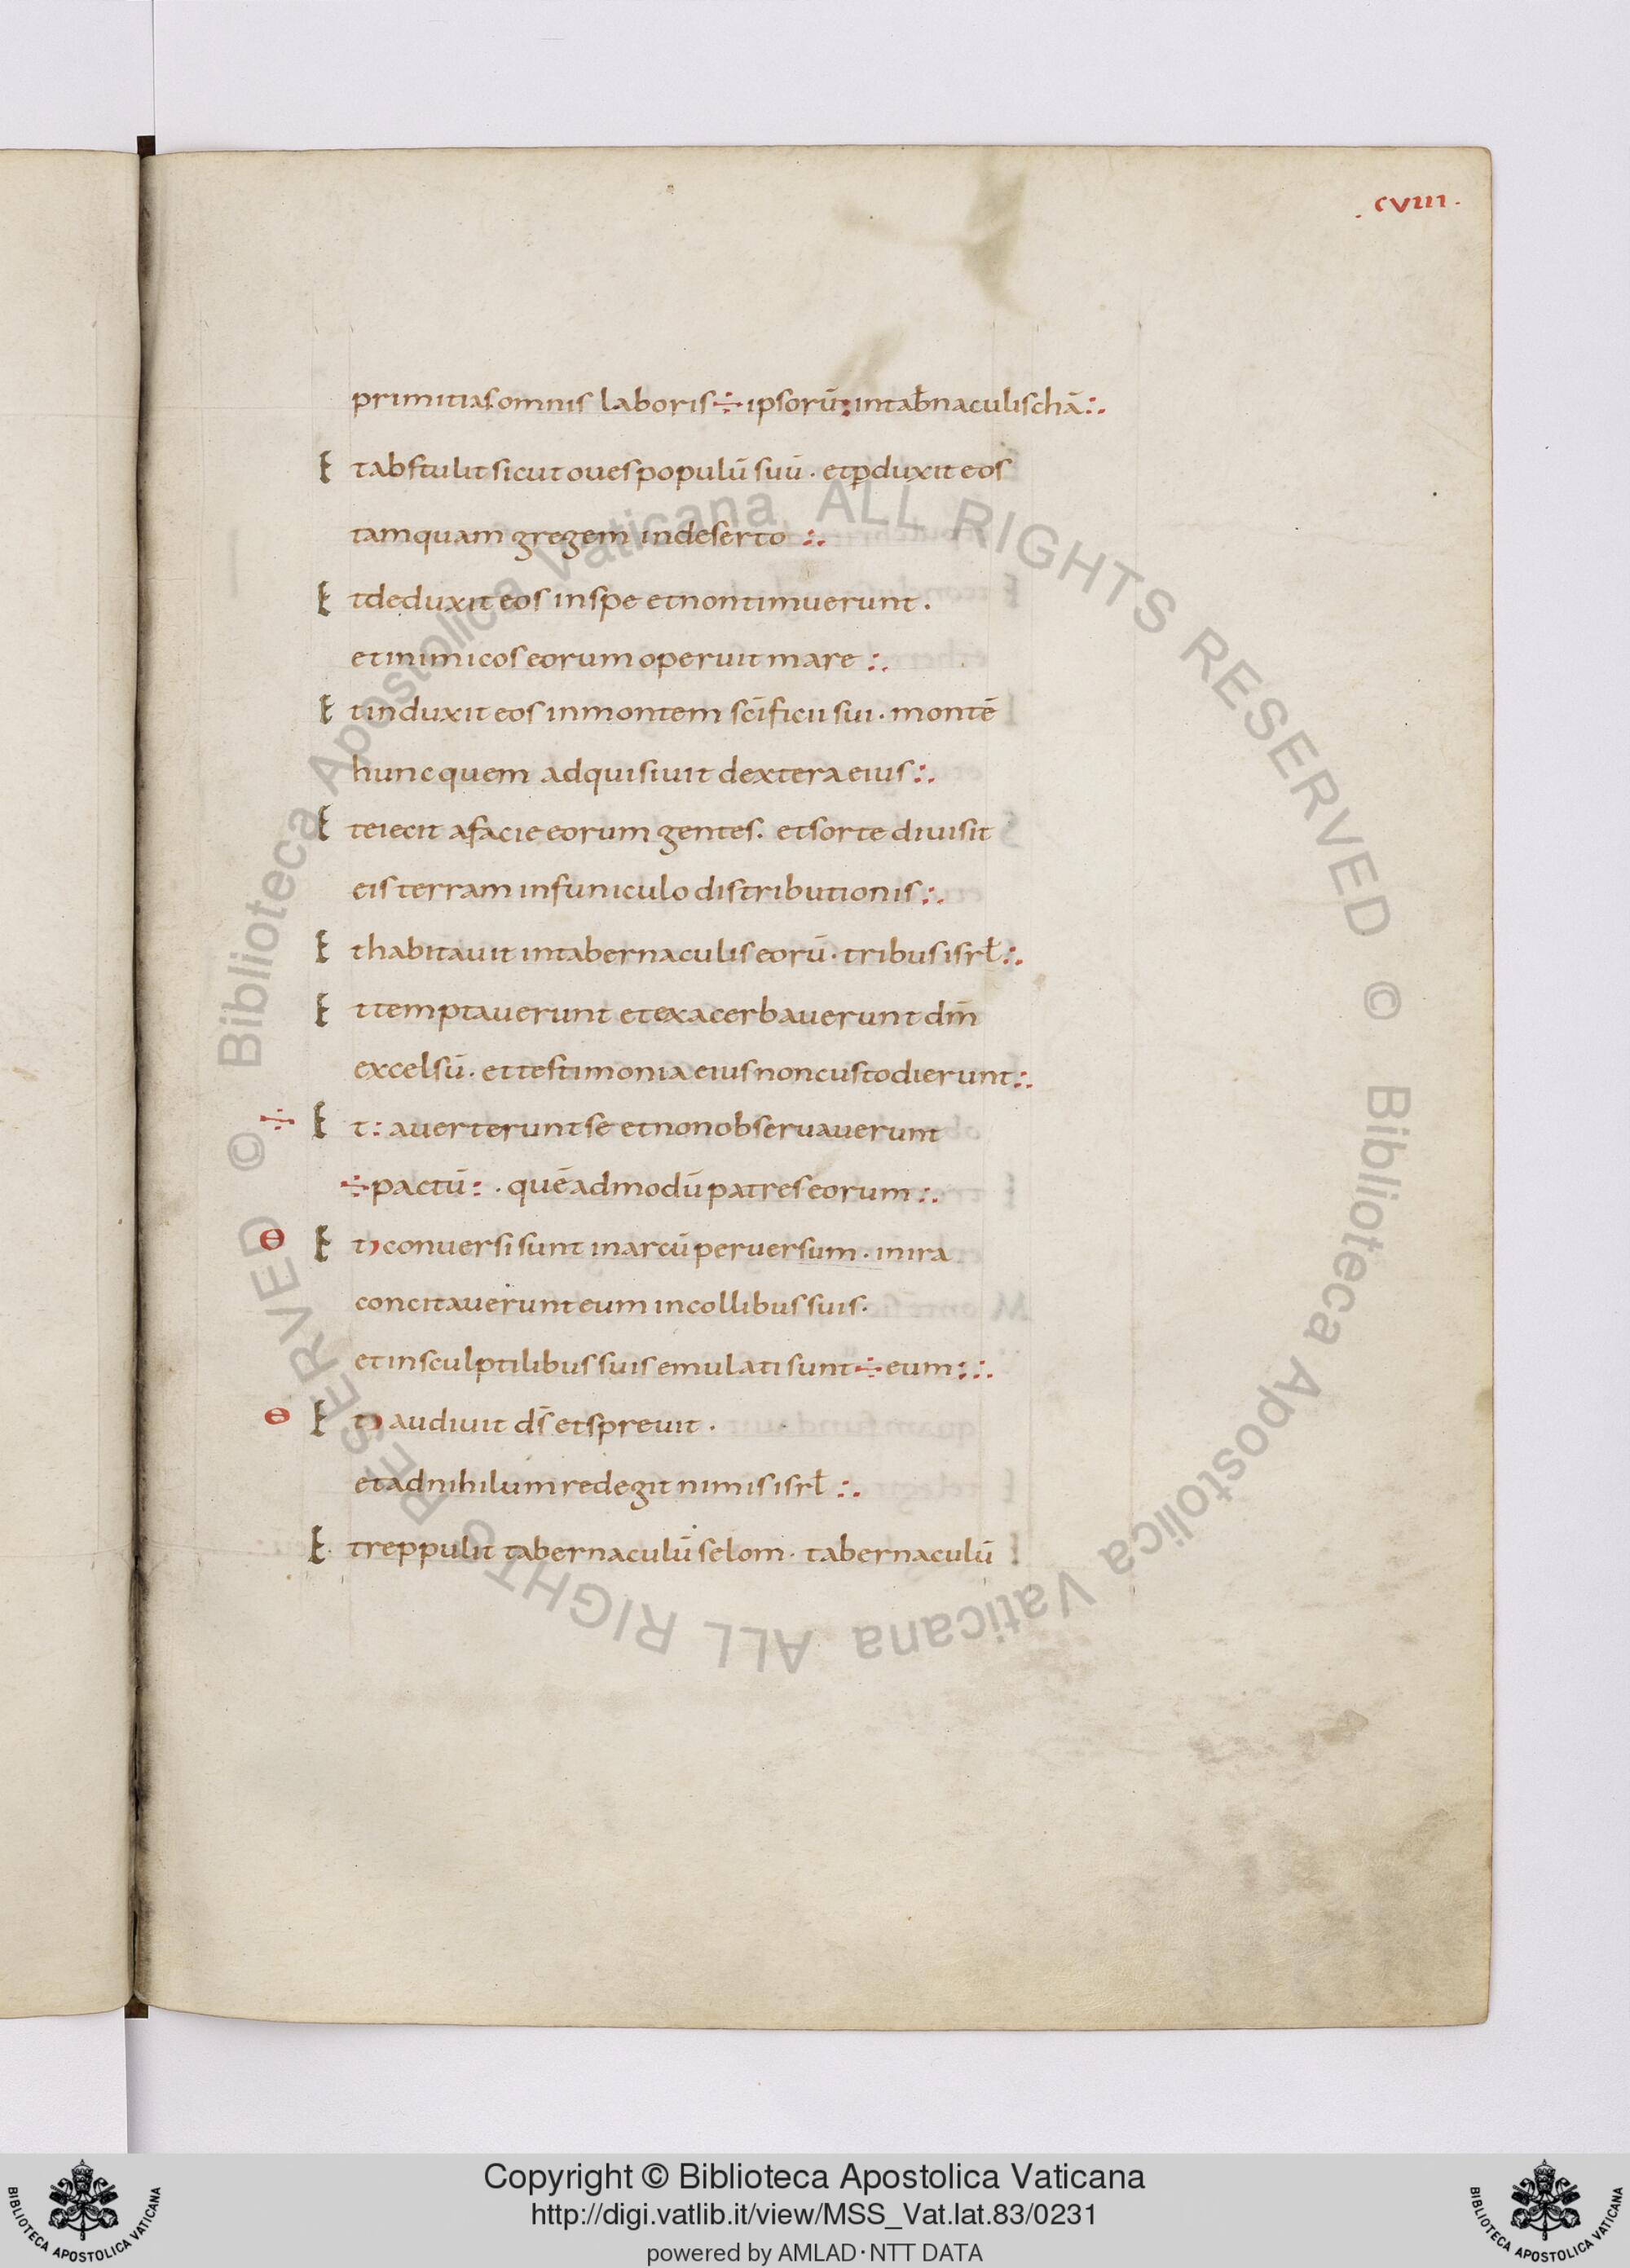 . CVIII .
primitias omnis laboris ÷ ipsorū: in tab̄naculis chā:.
Et abstulit sicut oves populū suū · et ꝑduxit eos
tamquam gregem in deserto :.
Et deduxit eos in spe et non timuerunt .
et inimicos eorum operuit mare :.
Et induxit eos in montem sc̄ificii sui · montē
hunc quem adquisiuit dextera eius :.
Et eiecit a facie eorum gentes. et sorte diuisit
eis terram in funiculo distributionis :.
Et habitauit in tabernaculis eorū · tribus isrł :.
Et temptauerunt et exacerbauerunt dm̄
excelsū · et testimonia eius non custodierunt :.
÷ Et : auerterunt se et non obseruauerunt
÷ pactū : · quēadmodū patres eorum :.
θ Et conuersi sunt in arcū peruersum · in ira
concitauerunt eum in collibus suis ·
et in sculptilibus suis emulati sunt ÷ eum : :.
θ Et audiuit ds̄ et spreuit .
et ad nihilum redegit nimis isrł :.
Et reppulit tabernaculū selom · tabernaculū
© Biblioteca Apostolica Vaticana ALL RIGHTS RESERVED © Biblioteca Apostolica Vaticana ALL RIGHTS RESERVED
Copyright © Biblioteca Apostolica Vaticana
http://digi.vatlib.it/view/MSS_Vat.lat.83/0231
powered by AMLAD·NTT DATA
BIBLIOTECA APOSTOLICA VATICANA
BIBLIOTECA APOSTOLICA VATICANA